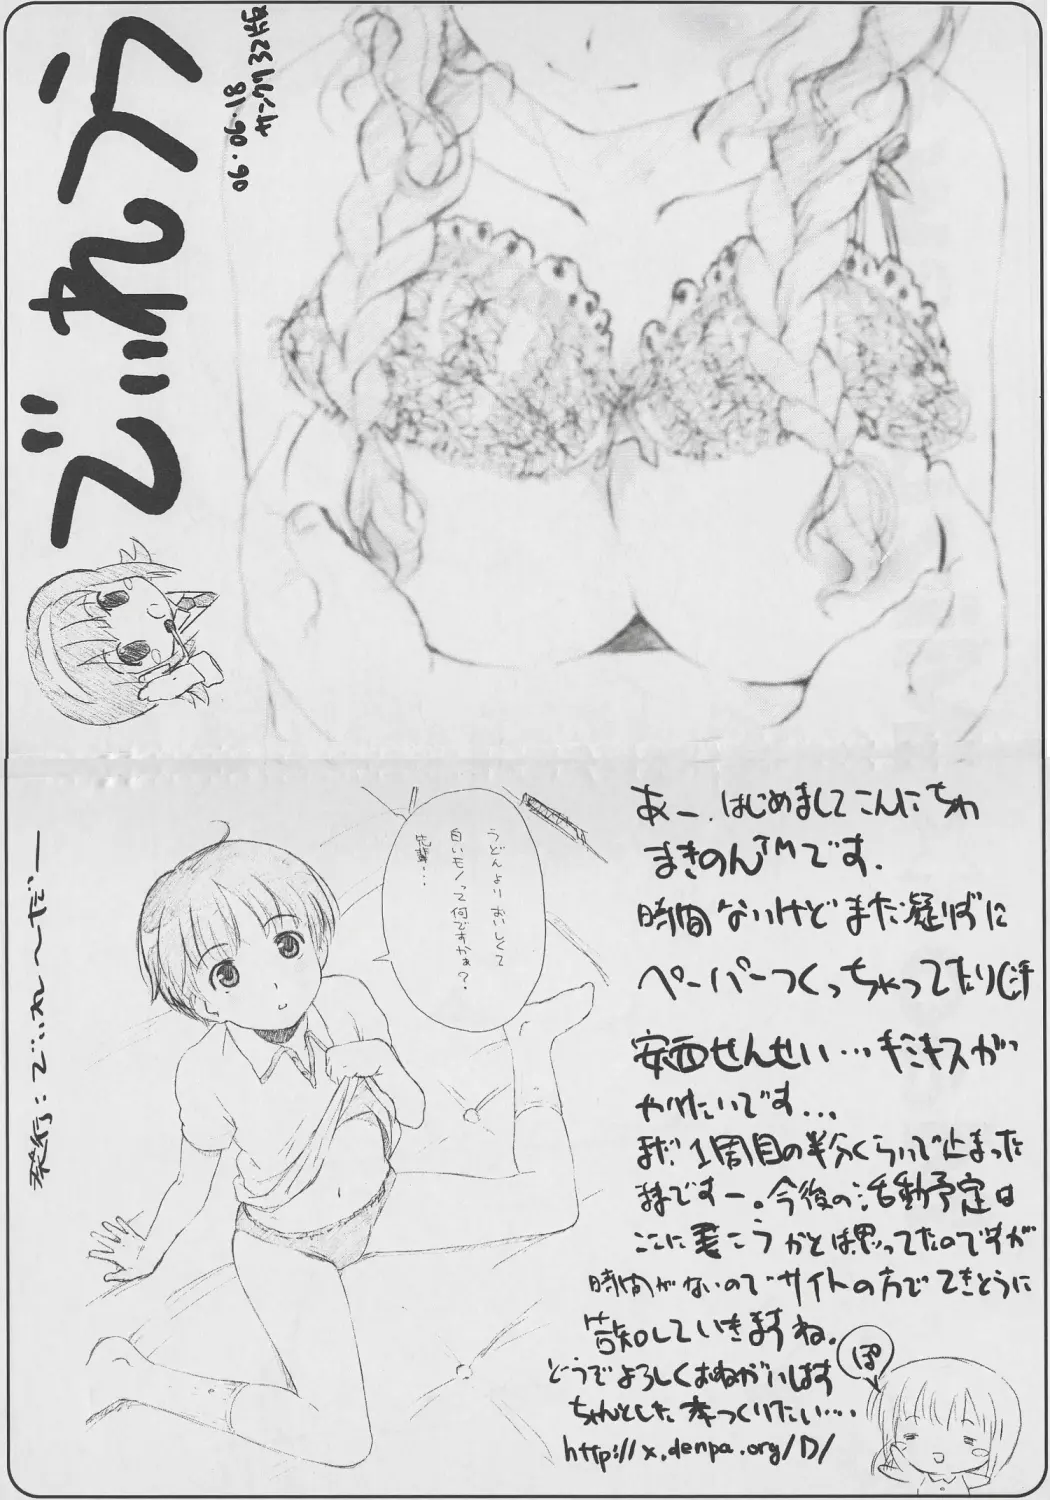 でいれう
06.06.18
サンクリ32版
うどんより おいしくて
白いモノって何ですかぁ?
先輩...
発行:でいれ〜だー
あー、はじめましてこんにちわ
まきのん™です.
時間ないけどまた凝りずに
ペーパーつくっちゃってたり(汗
安西せんせい…キミキスが
やりたいです...
まだ1周目の半分くらいで止まった
ままですー。今後の活動予定は
ここに書こうかとは思ってたのですが
時間がないのでサイトの方でてきとうに
告知していきますね.
どうぞよろしくおねがいします
ちゃんとした本つくりたい…
http://x.denpa.org/D/
ぽ